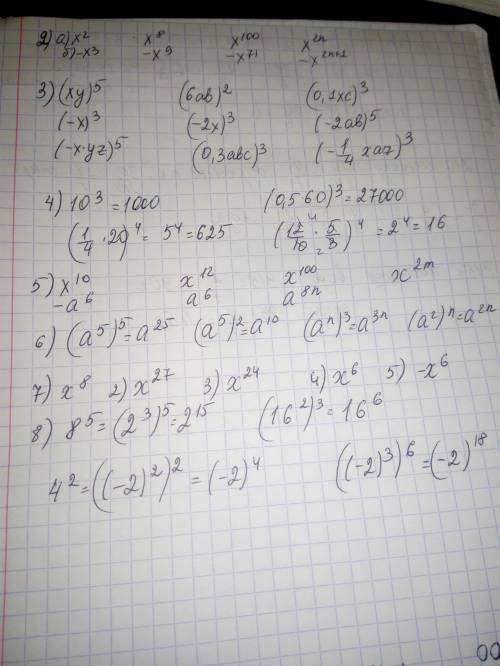 2) а) x² x⁸ x¹⁰⁰ x²ⁿ
б) -x³ -x⁹ -x⁷¹ -x²ⁿ⁺¹
3) (xy)⁵ (6ab)² (0,1xc)³
(-x)³ (-2x)³ (-2ab)⁵
(-x·yz)⁵ (0,3abc)³ (-1/4 xaz)³
4) 10³=1000 (0,5·60)³=27000
(1/4 · 20)⁴= 5⁴=625 (12/10 · 5/3)⁴ = 2⁴ = 16
5) x¹⁰ x¹² x¹⁰⁰ x²ᵐ
-a⁶ a⁶ a⁸ⁿ
6) (a⁵)⁵=a²⁵ (a⁵)²=a¹⁰ (aⁿ)³=a³ⁿ (a²)ⁿ=a²ⁿ
7) x⁸ 2) x²⁷ 3) x²⁴ 4) x⁶ 5) -x⁶
8) 8⁵=(2³)⁵=2¹⁵ (16²)³=16⁶
4²=((-2)²)²=(-2)⁴ ((-2)³)⁶=(-2)¹⁸